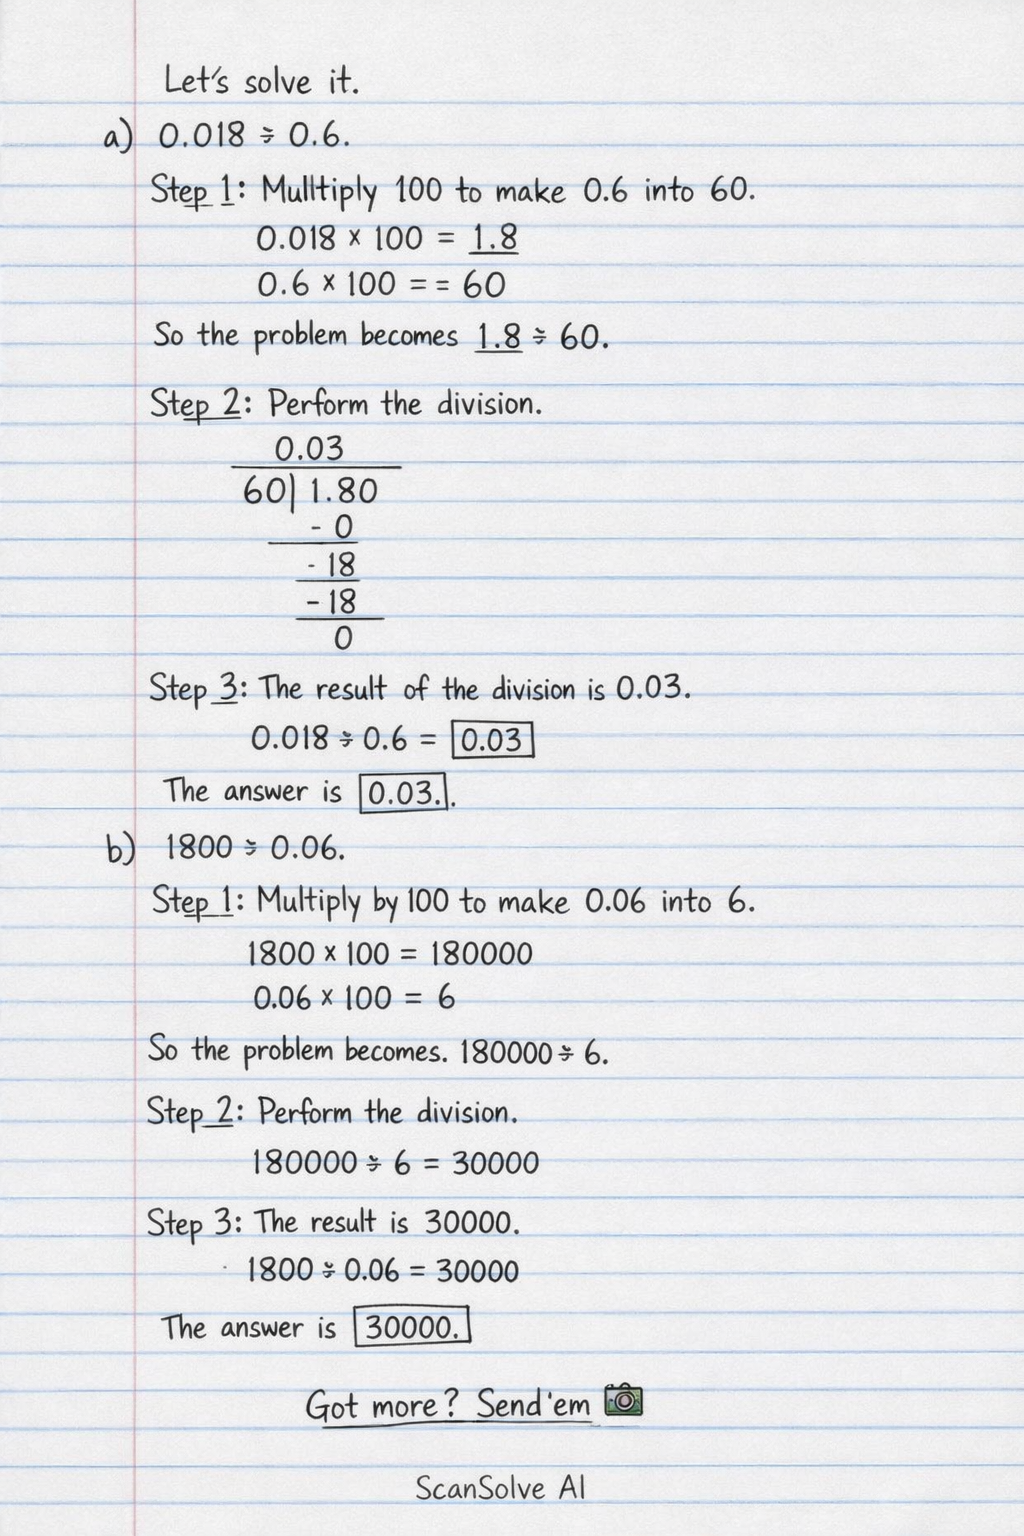 Let's solve it.
a) 0.018 ÷ 0.6.
Step 1: Mulltiply 100 to make 0.6 into 60.
0.018 × 100 = 1.8
0.6 × 100 = = 60
So the problem becomes 1.8 ÷ 60.
Step 2: Perform the division.
0.03
60) 1.80
- 0
- 18
- 18
0
Step 3: The result of the division is 0.03.
0.018 ÷ 0.6 = 0.03
The answer is 0.03..
b) 1800 ÷ 0.06.
Step 1: Multiply by 100 to make 0.06 into 6.
1800 × 100 = 180000
0.06 × 100 = 6
So the problem becomes. 180000 ÷ 6.
Step 2: Perform the division.
180000 ÷ 6 = 30000
Step 3: The result is 30000.
1800 ÷ 0.06 = 30000
The answer is 30000.
Got more? Send 'em
ScanSolve AI